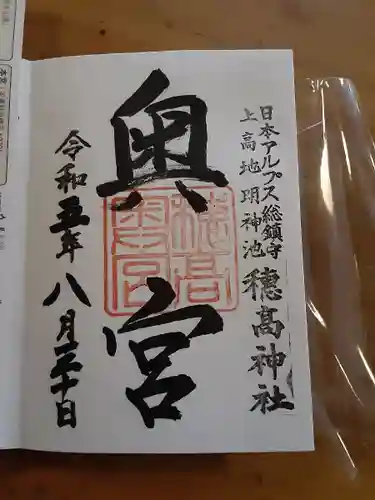 日本アルプス総鎮守
上高地明神池
穂高神社
奥宮
穂高
奥宮
令和五年八月三十日